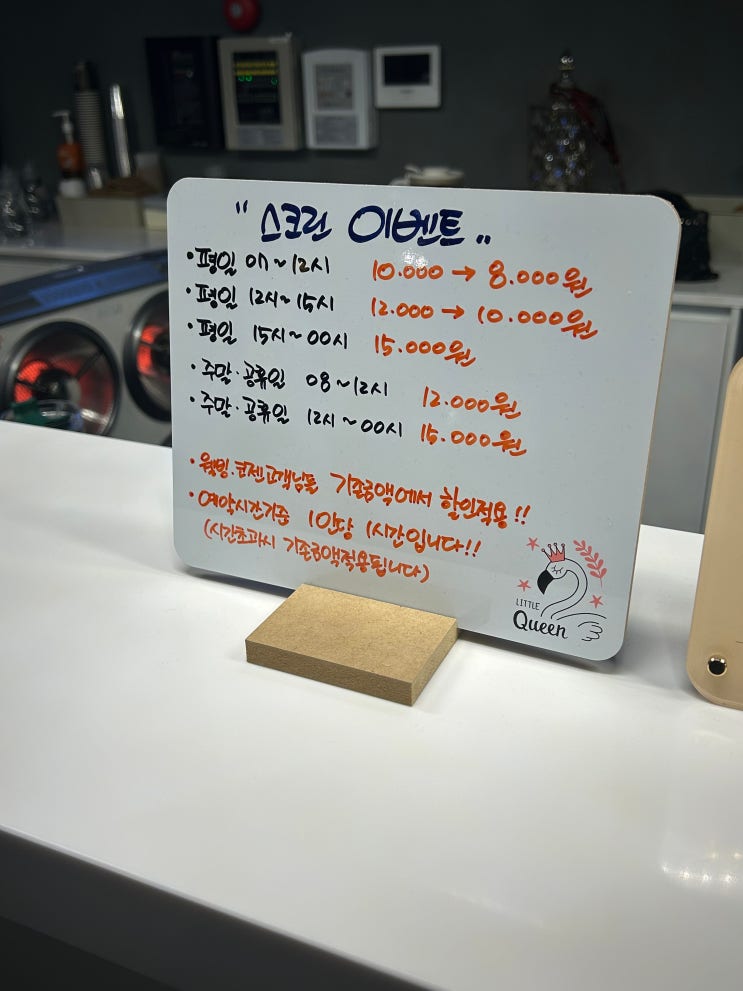 "스크린 이벤트"
• 평일 07~12시 10.000 → 8.000원
• 평일 12시~15시 12.000 → 10.000원
• 평일 15시~00시 15.000원
• 주말·공휴일 08~12시 12.000원
• 주말·공휴일 12시~00시 15.000원
• 웰빙.코젠고객님들 기존금액에서 할인적용!!
• 예약시간기준 1인당 1시간입니다!!
(시간초과시 기존금액적용됩니다)
LITTLE
Queen